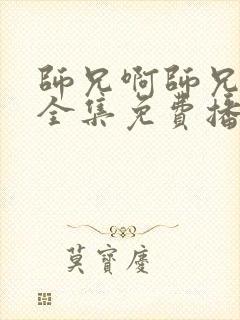 師兄啊師兄
全集免費播
莫寶慶